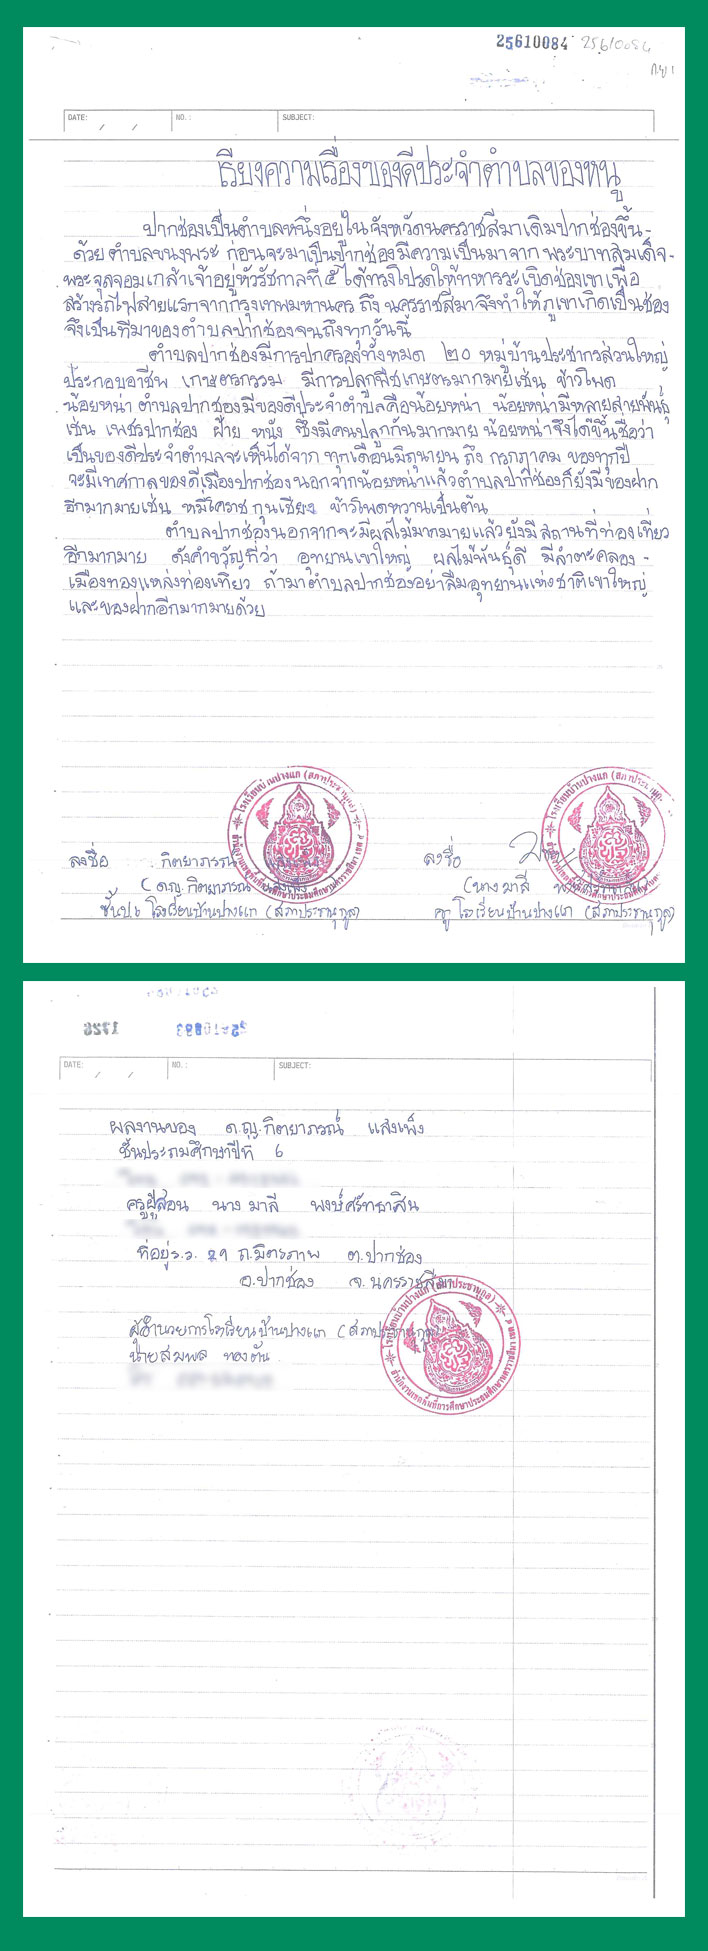 25610084 25610084
ก.ข 1
DATE: / / NO.: SUBJECT:
เรียงความเรื่องของดีประจำตำบลของหนู
ปากช่องเป็นตำบลหนึ่งอยู่ในจังหวัดนครราชสีมาเดิมปากช่องขึ้น-
ด้วยตำบลขนงพระ ก่อนจะมาเป็นปากช่องมีความเป็นมาจาก พระบาทสมเด็จ-
พระจุลจอมเกล้าเจ้าอยู่หัวรัชกาลที่ ๕ ได้ทรงโปรดให้ทหารระเบิดช่องเขาเพื่อ
สร้างรถไฟสายแรกจากกรุงเทพมหานคร ถึง นครราชสีมาจึงทำให้ภูเขาเกิดเป็นช่อง
จึงเป็นที่มาของตำบลปากช่องจนถึงทุกวันนี้
ตำบลปากช่องมีการปกครองทั้งหมด ๒๐ หมู่บ้านประชากรส่วนใหญ่
ประกอบอาชีพ เกษตรกรรม มีการปลูกพืชเกษตรมากมายเช่น ข้าวโพด
น้อยหน่า ตำบลปากช่องมีของดีประจำตำบลคือน้อยหน่า น้อยหน่ามีหลายสายพันธุ์
เช่น เพชรปากช่อง ฝ้าย หนัง ซึ่งมีคนปลูกกันมากมาย น้อยหน่าจึงได้ขึ้นชื่อว่า
เป็นของดีประจำตำบลจะเห็นได้จาก ทุกเดือนมิถุนายน ถึง กรกฎาคม ของทุกปี
จะมีเทศกาลของดีเมืองปากช่อง นอกจากน้อยหน่าแล้วตำบลปากช่องก็ยังมีของฝาก
อีกมากมายเช่น หมี่โคราช กุนเชียง ข้าวโพดหวานเป็นต้น
ตำบลปากช่องนอกจากจะมีผลไม้มากมายแล้วยังมีสถานที่ท่องเที่ยว
อีกมากมาย ดังคำขวัญที่ว่า อุทยานเขาใหญ่ ผลไม้พันธุ์ดี มีลำตะคลอง -
เมืองทองแหล่งท่องเที่ยว ถ้ามาตำบลปากช่องอย่าลืมอุทยานแห่งชาติเขาใหญ่
และของฝากอีกมากมายด้วย
โรงเรียนบ้านปางแก (สภาประชานุกูล)
โรงเรียนบ้านปางแก (สภาประชานุกูล)
ลงชื่อ กิตยาภรณ์ แสงเพ็ง ลงชื่อ
(ด.ญ.กิตยาภรณ์ แสงเพ็ง) (นาง มาลี
ชั้นป.๖ โรงเรียนบ้านปางแก (สภาประชานุกูล) ครู โรงเรียนบ้านปางแก (สภาประชานุกูล)
DATE: / / NO.: SUBJECT:
ผลงานของ ด.ญ.กิตยาภรณ์ แสงเพ็ง
ชั้นประถมศึกษาปีที่ 6
ครูผู้สอน นาง มาลี พงษ์ศรัทธาสิน
ที่อยู่ร.ร. ๒๑ ถ.มิตรภาพ ต.ปากช่อง
อ.ปากช่อง จ.นครราชสีมา
ผู้อำนวยการโรงเรียนบ้านปางแก (สภาประชานุกูล)
นายสมพล ทองตัน
โรงเรียนบ้านปางแก (สภาประชานุกูล)
สำนักงานเขตพื้นที่การศึกษาประถมศึกษานครราชสีมา เขต ๔